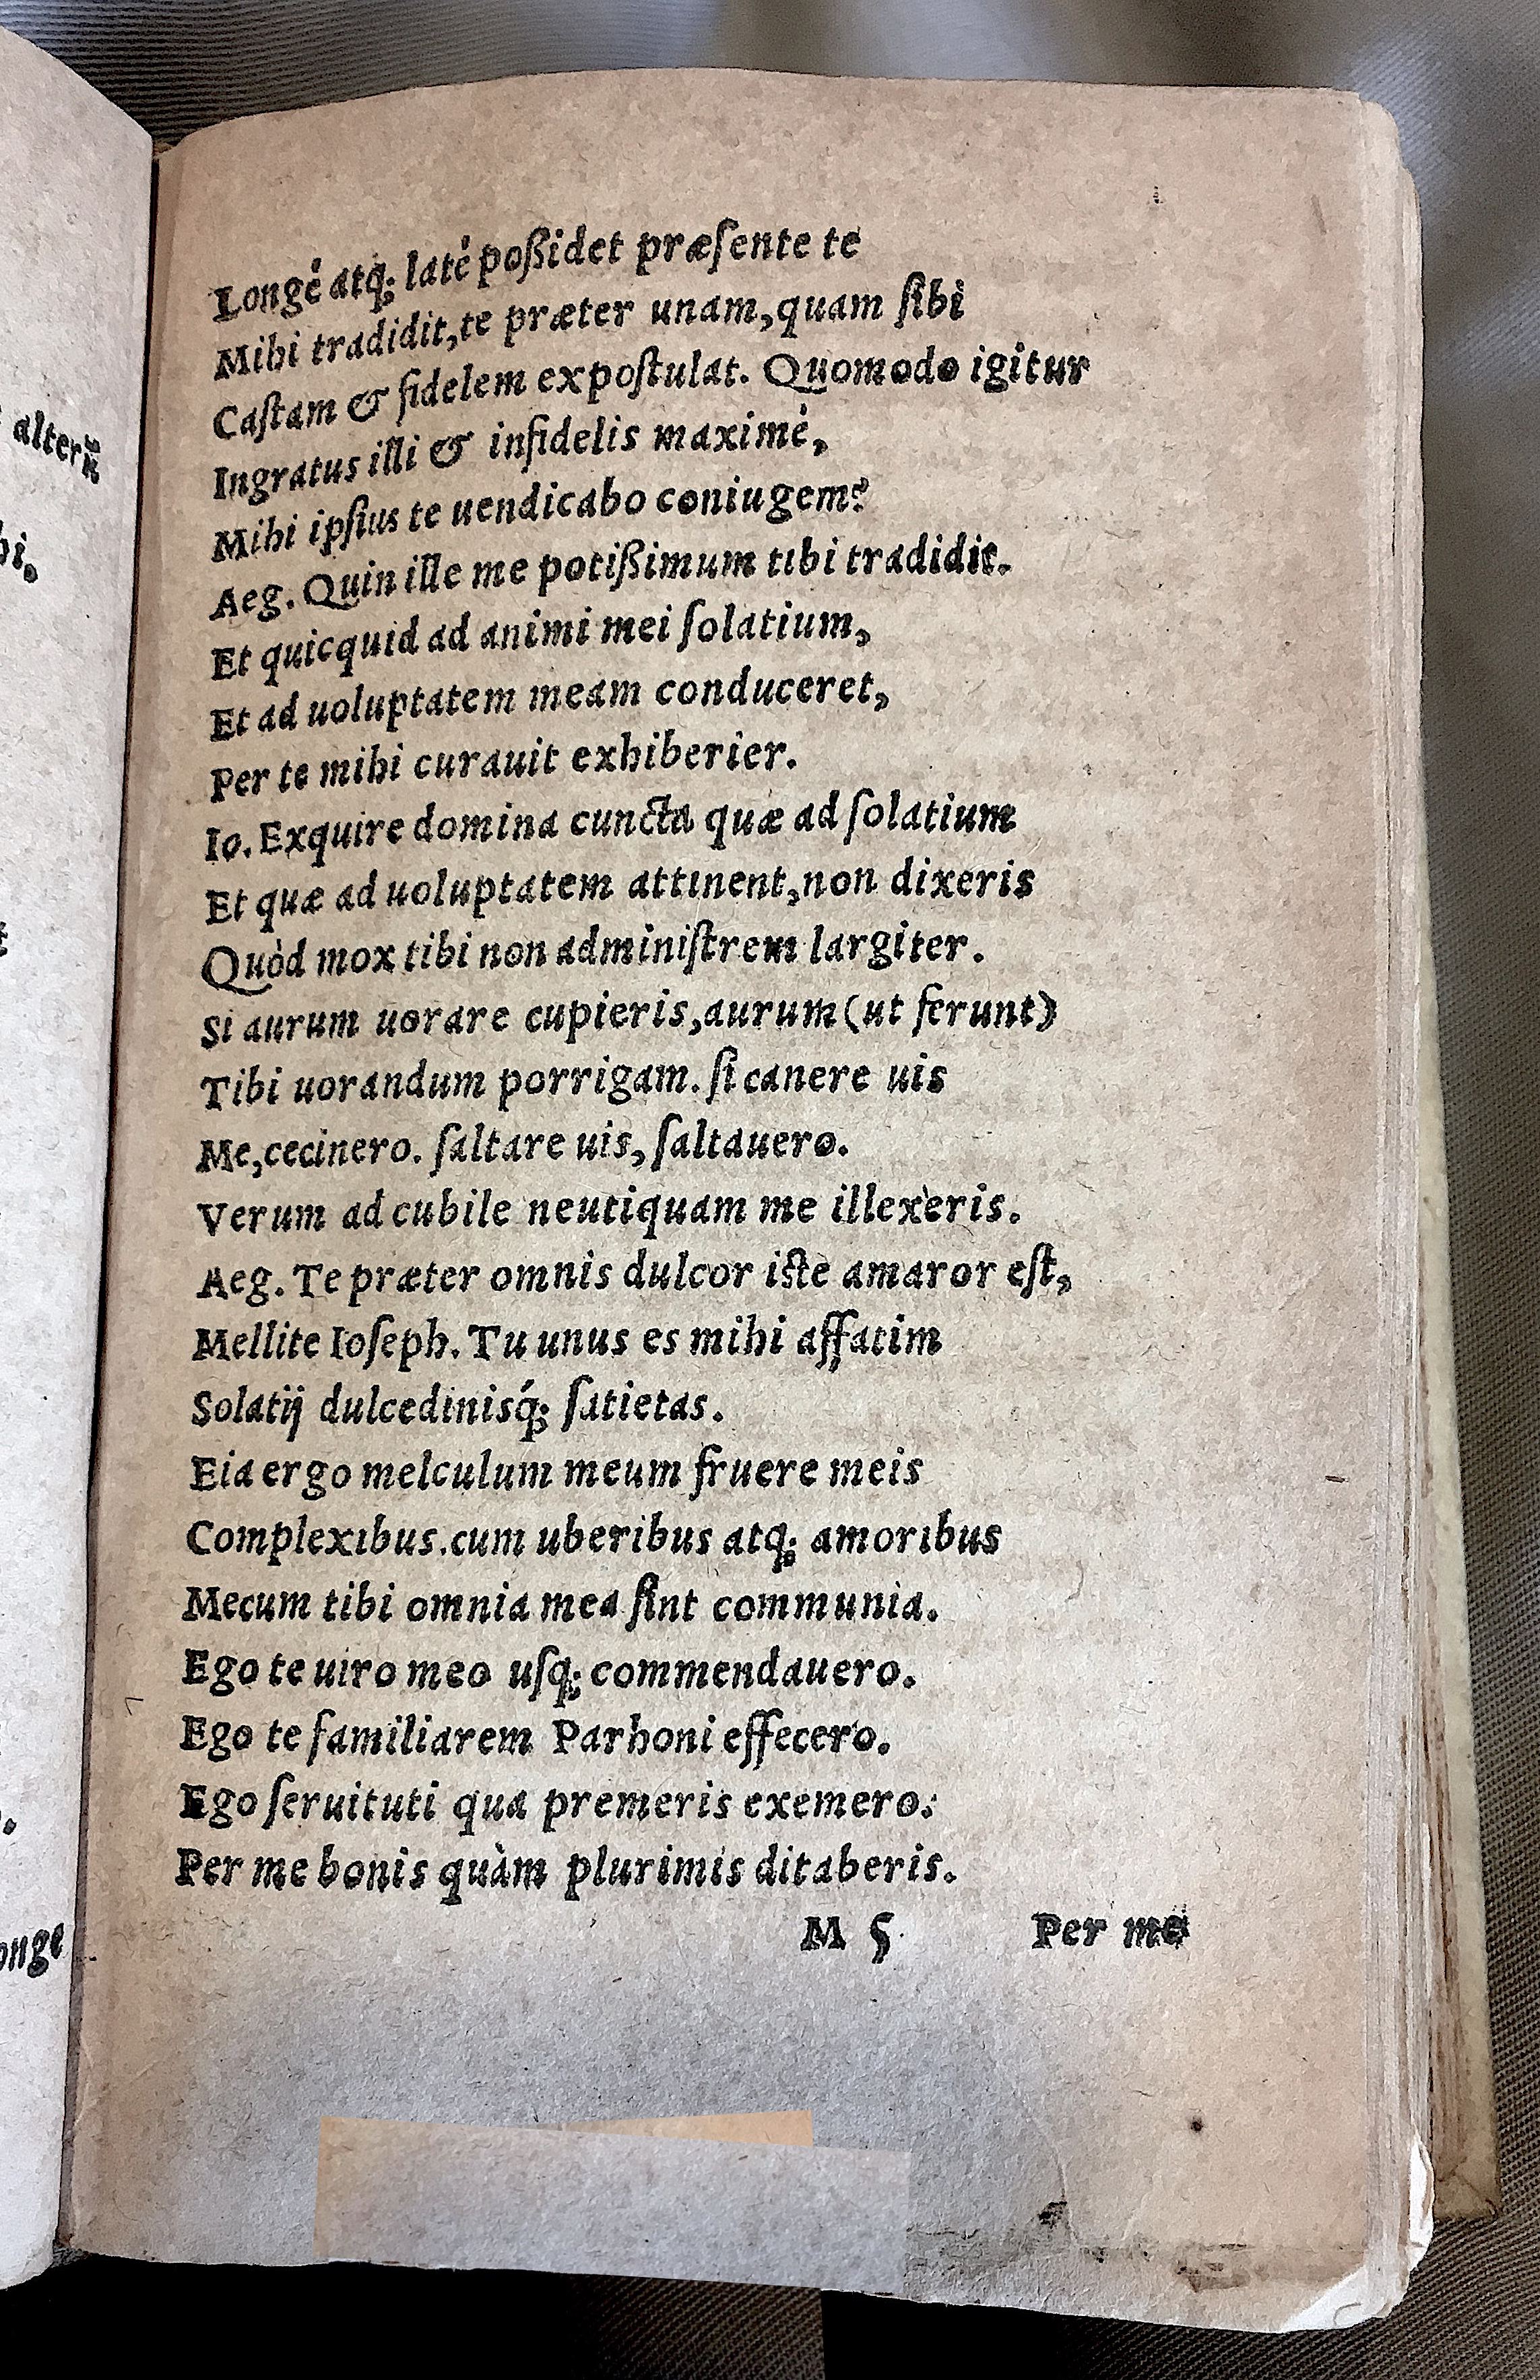 alterũ
hi.
onge
Longé atq; laté poßidet præſente te
Mihi tradidit,te præter unam,quam ſibi
Caſtam & fidelem expoſtulat. Quomodo igitur
Ingratus illi & infidelis maximé,
Mihi ipſius te uendicabo coniugem?
Aeg. Quin ille me potißimum tibi tradidit.
Et quicquid ad animi mei ſolatium,
Et ad uoluptatem meam conduceret,
Per te mihi curauit exhiberier.
Io. Exquire domina cuncta quæ ad ſolatium
Et quæ ad uoluptatem attinent,non dixeris
Quòd mox tibi non adminiſtrem largiter.
Si aurum uorare cupieris,aurum(ut ferunt)
Tibi uorandum porrigam. ſi canere uis
Me,cecinero. ſaltare uis, ſaltauero.
Verum ad cubile neutiquam me illexeris.
Aeg. Te præter omnis dulcor iſte amaror eſt,
Mellite Ioſeph. Tu unus es mihi affatim
Solatij dulcedinisq́; ſatietas.
Eia ergo melculum meum fruere meis
Complexibus.cum uberibus atq; amoribus
Mecum tibi omnia mea ſint communia.
Ego te uiro meo uſq; commendauero.
Ego te familiarem Parhoni effecero.
Ego ſeruituti qua premeris exemero:
Per me bonis quàm plurimis ditaberis.
M 5 Per me